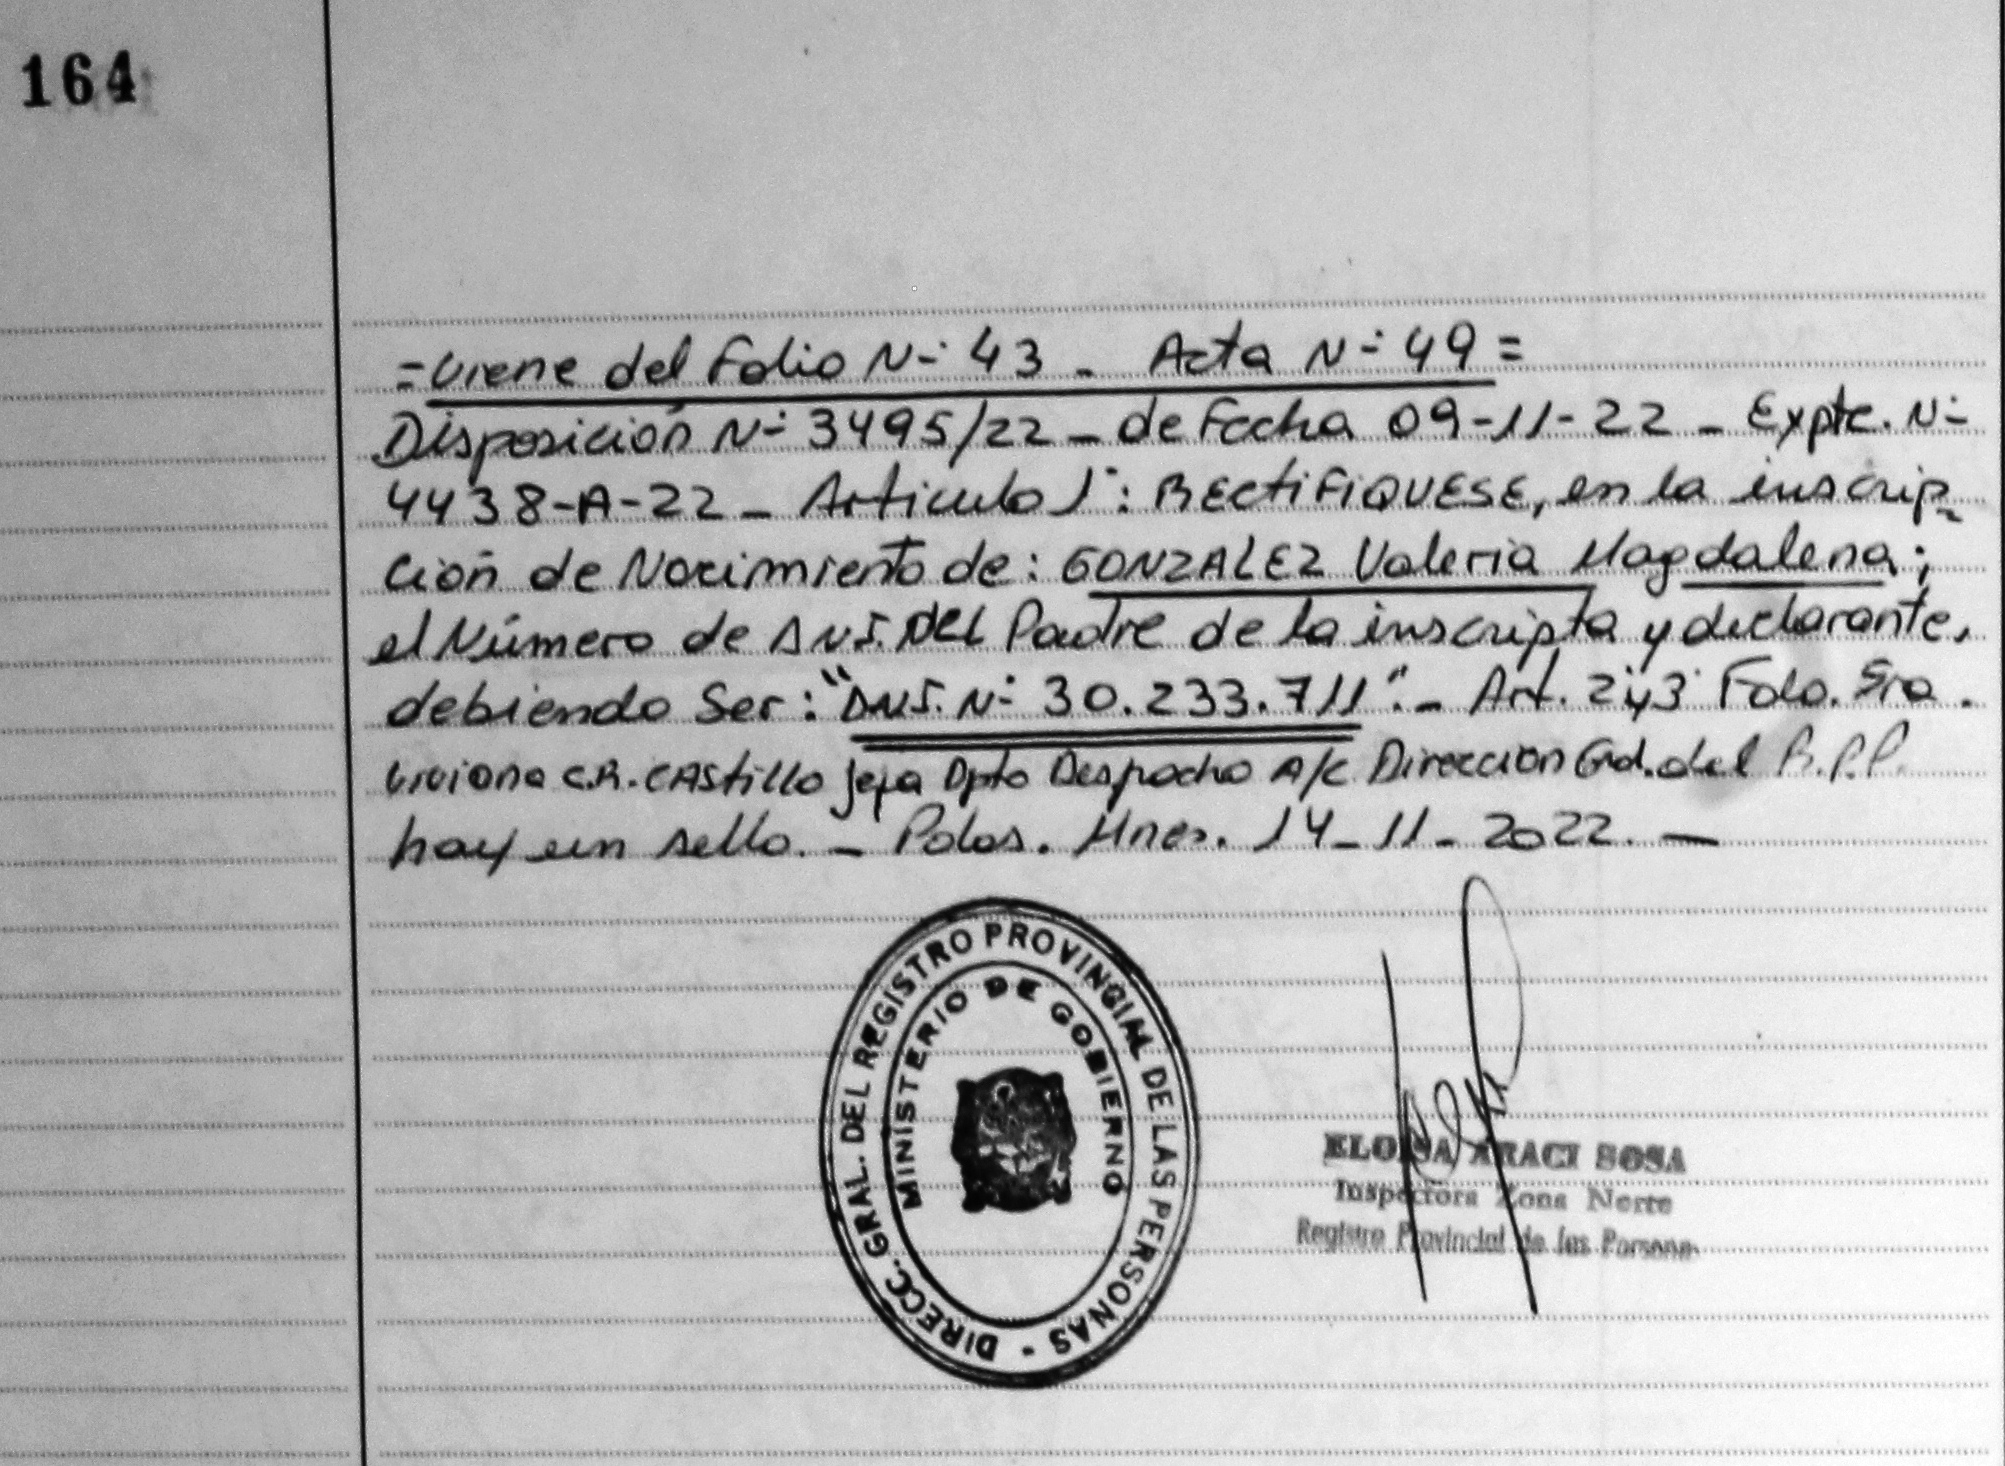 164
=Viene del Folio N-° 43 - Acta N-° 49=
Disposición N-° 3495/22 - de Fecha 09-11-22 - Expte. N-°
4438-A-22 - Articulo 1°: RECTIFIQUESE, en la inscrip-
ción de Nacimiento de: GONZALEZ Valeria Magdalena;
el Número de D.N.I. DEL Padre de la inscripta y declarante,
debiendo Ser: "DNI. N-° 30.233.711".- Art. 2°y3° Fdo. Sra.
Viviana C.R. CAStillo Jefa Dpto Despacho A/C Dirección Gral. del R.P.P.
hay un sello. - Pdas. Mnes. 14-11-2022. -
DIRECC. GRAL. DEL REGISTRO PROVINCIAL DE LAS PERSONAS -
MINISTERIO DE GOBIERNO
ELOISA ARACI SOSA
Inspectora Zona Norte
Registro Provincial de las Persona